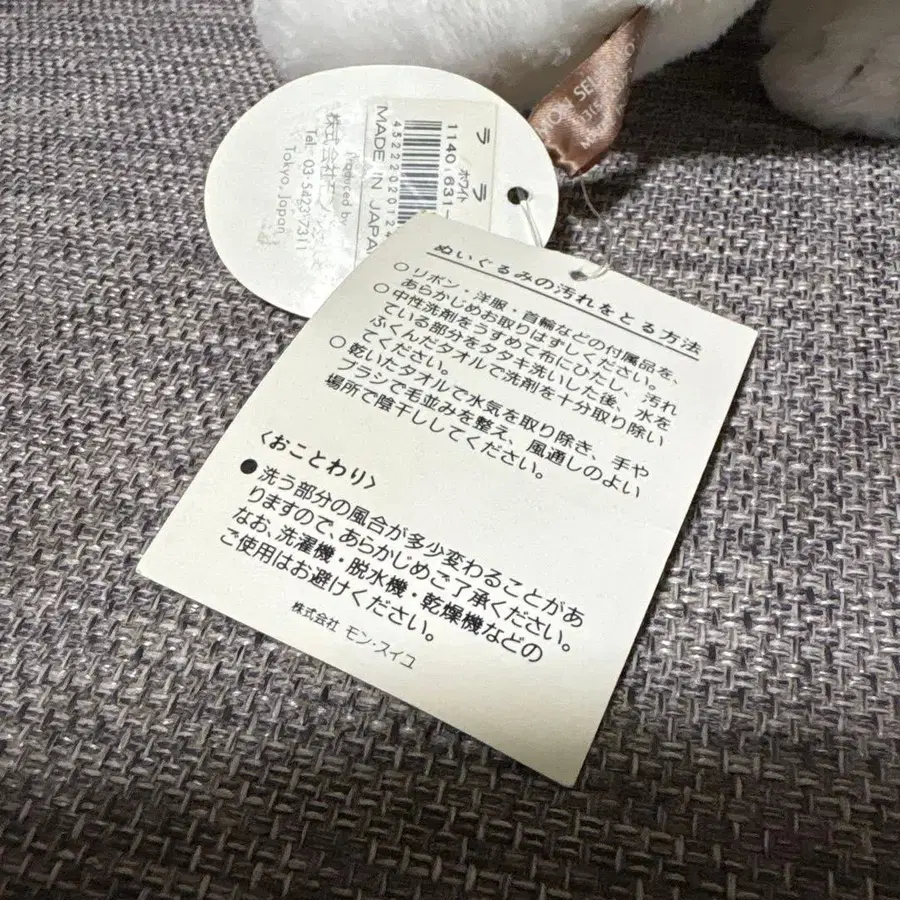 ラ ラ
ホワイト
1140 631
MADE IN JAPA
produced by
株式会社モン・スイユ
Tel. 03-5423-7311
Tokyo, Japan
ぬいぐるみの汚れをとる方法
○ リボン・洋服・首輪などの付属品を、
あらかじめお取りはずしください。
○ 中性洗剤をうすめて布にひたし、汚れ
ている部分をタタキ洗いした後、水を
ふくんだタオルで洗剤を十分取り除い
てください。
○ 乾いたタオルで水気を取り除き、手や
ブラシで毛並みを整え、風通しのよい
場所で陰干ししてください。
〈おことわり〉
● 洗う部分の風合が多少変わることがあ
りますので、あらかじめご了承ください。
なお、洗濯機・脱水機・乾燥機などの
ご使用はお避けください。
株式会社 モン・スイユ